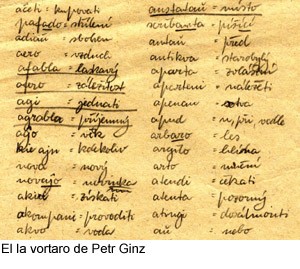 aĉeti = kupovati
pafado = střílení
adiaŭ = sbohem
aero = vzduch
afabla = laskavý
afero = záležitost
agi = jednati
agrabla = příjemný
aĝo = věk
kie ajn = kdekoliv
nova = nový
novaĵo = novinka
akiri = získati
akompani = provoditi
akvo = voda
anstataŭ = místo
skribanta = píšící
antaŭ = před
antikva = starobylý
aparta = zvláštní
aparteni = náležeti
apenaŭ = sotva
apud = u, při, vedle
arbaro = les
argilo =
arto = umění
atendi = čekati
atenta = pozorný
atingi =
aŭ = nebo
El la vortaro de Petr Ginz